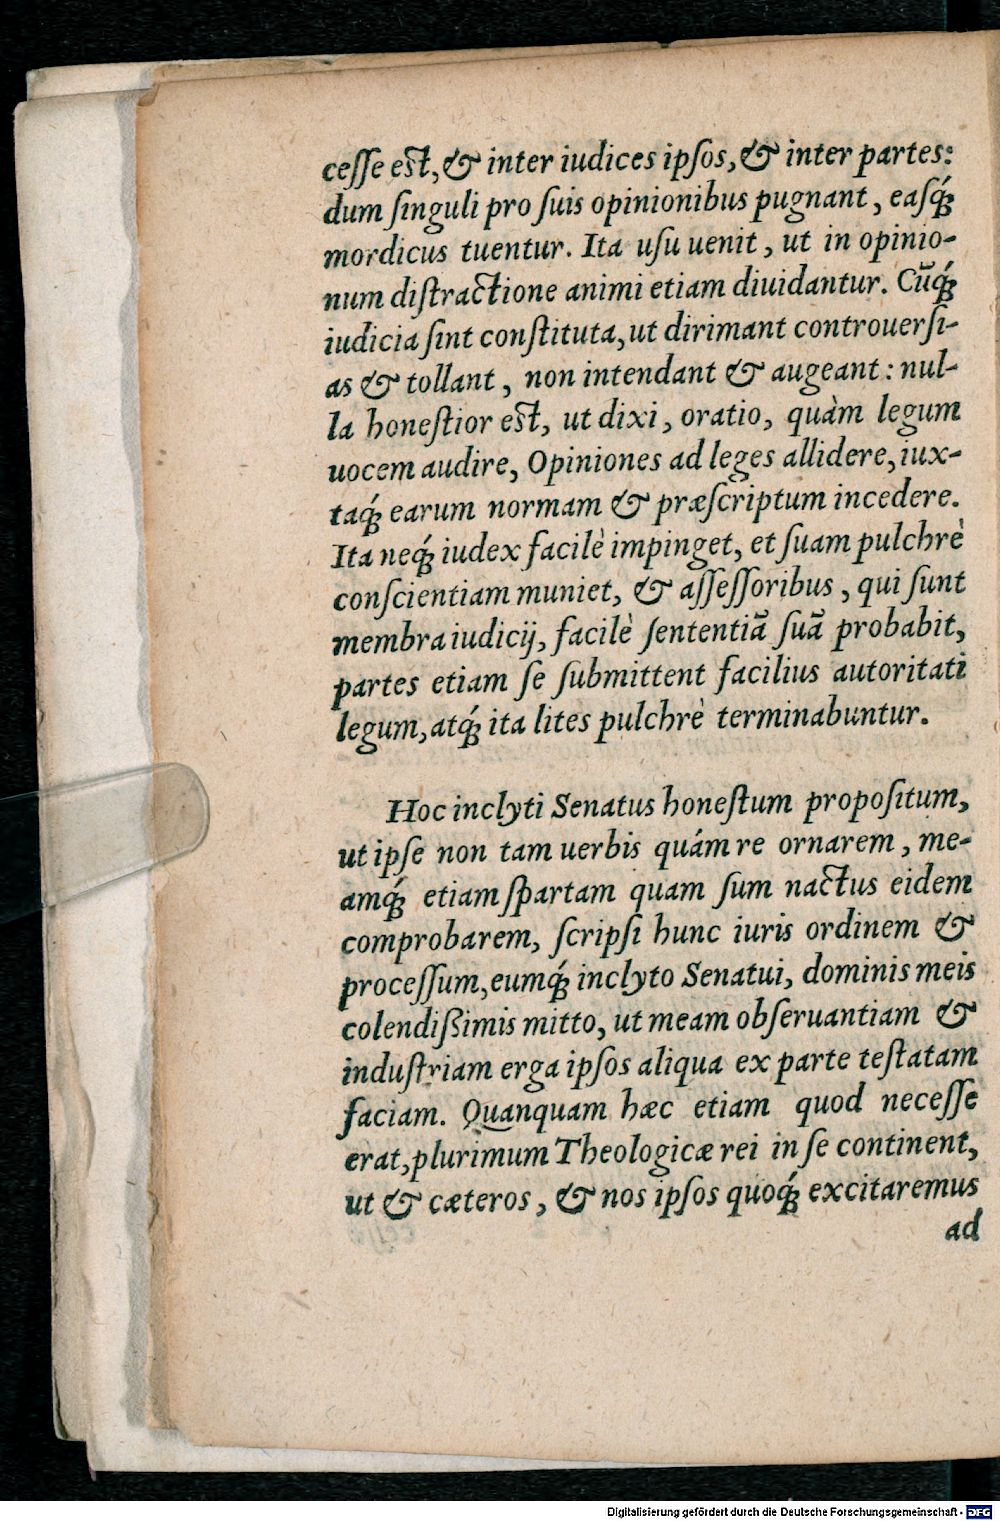 ceſſe eſt, & inter iudices ipſos, & inter partes:
dum ſinguli pro ſuis opinionibus pugnant, eaſq́;
mordicus tuentur. Ita uſu uenit, ut in opinio-
num diſtractione animi etiam diuidantur. Cũq́;
iudicia ſint conſtituta, ut dirimant controuerſi-
as & tollant, non intendant & augeant: nul-
la honeſtior eſt, ut dixi, oratio, quàm legum
uocem audire, Opiniones ad leges allidere, iux-
taq́; earum normam & præſcriptum incedere.
Ita neq́; iudex facilè impinget, et ſuam pulchrè
conſcientiam muniet, & aſſeſſoribus, qui ſunt
membra iudicij, facilè ſententiã ſuã probabit,
partes etiam ſe ſubmittent facilius autoritati
legum, atq́; ita lites pulchrè terminabuntur.
Hoc inclyti Senatus honeſtum propoſitum,
ut ipſe non tam uerbis quám re ornarem, me-
amq́; etiam ſpartam quam ſum nactus eidem
comprobarem, ſcripſi hunc iuris ordinem &
proceſſum, eumq́; inclyto Senatui, dominis meis
colendißimis mitto, ut meam obſeruantiam &
induſtriam erga ipſos aliqua ex parte teſtatam
faciam. Quanquam hæc etiam quod neceſſe
erat, plurimum Theologicæ rei in ſe continent,
ut & cæteros, & nos ipſos quoq́; excitaremus
ad
Digitalisierung gefördert durch die Deutsche Forschungsgemeinschaft - DFG